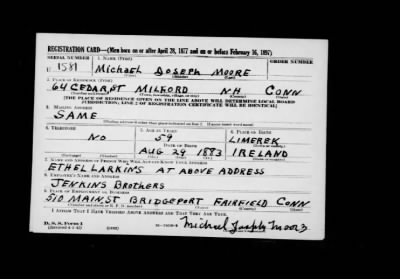 REGISTRATION CARD—(Men born on or after April 28, 1877 and on or before February 16, 1897)
SERIAL NUMBER 1. NAME (Print) ORDER NUMBER
1581 MICHAEL JOSEPH MOORE
(First) (Middle) (Last)
2. PLACE OF RESIDENCE (Print)
64 CEDAR ST MILFORD NH CONN
(Number and street) (Town, township, village, or city) (County) (State)
[THE PLACE OF RESIDENCE GIVEN ON THE LINE ABOVE WILL DETERMINE LOCAL BOARD
JURISDICTION; LINE 2 OF REGISTRATION CERTIFICATE WILL BE IDENTICAL]
3. MAILING ADDRESS
SAME
4. TELEPHONE 5. AGE IN YEARS 6. PLACE OF BIRTH
NO 59 LIMEREK
DATE OF BIRTH
AUG 29 1883 IRELAND
7. NAME AND ADDRESS OF PERSON WHO WILL ALWAYS KNOW YOUR ADDRESS
ETHEL LARKINS AT ABOVE ADDRESS
8. EMPLOYER'S NAME AND ADDRESS
JENKINS BROTHERS
9. PLACE OF EMPLOYMENT OR BUSINESS
510 MAIN ST BRIDGEPORT FAIRFIELD CONN
I AFFIRM THAT I HAVE VERIFIED ABOVE ANSWERS AND THAT THEY ARE TRUE.
D. S. S. Form 1
Michael Joseph Moore